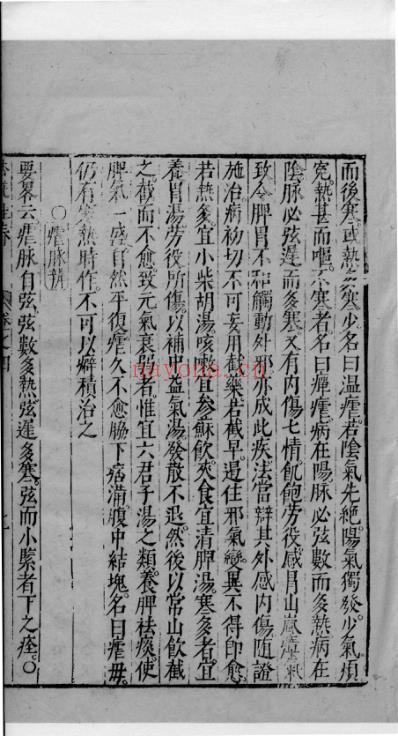 而後寒或熱多寒少名曰温瘧若陰氣先絶陽氣獨發少氣煩
寃熱甚而嘔不寒者名曰癉瘧病在陽脉必弦數而多熱病在
陰脉必弦遲而多寒又有内傷七情飢飽劳役感冒山嵐瘴氣
致令脾胃不和觸動外邪亦成此疾法當辯其外感内傷隨證
施治病初切不可妄用截藥若截早遏住邪氣變異不得即愈
若熱多宜小柴胡湯咳嗽宜参蘇飲夾食宜清脾湯寒多者宜
養胃湯劳役所傷以補中益氣湯發散不退然後以常山飲截
之截而不愈致元氣衰弱者惟宜六君子湯之類養脾祛痰使
脾氣一盛自然平復瘧久不愈脇下痞滿腹中結塊名曰瘧母
仍有寒熱時作不可以癖積治之
○瘧脉
要畧云瘧脉自弦弦數多熱弦遲多寒弦而小緊者下之痊○
卷之四
nayona.cn